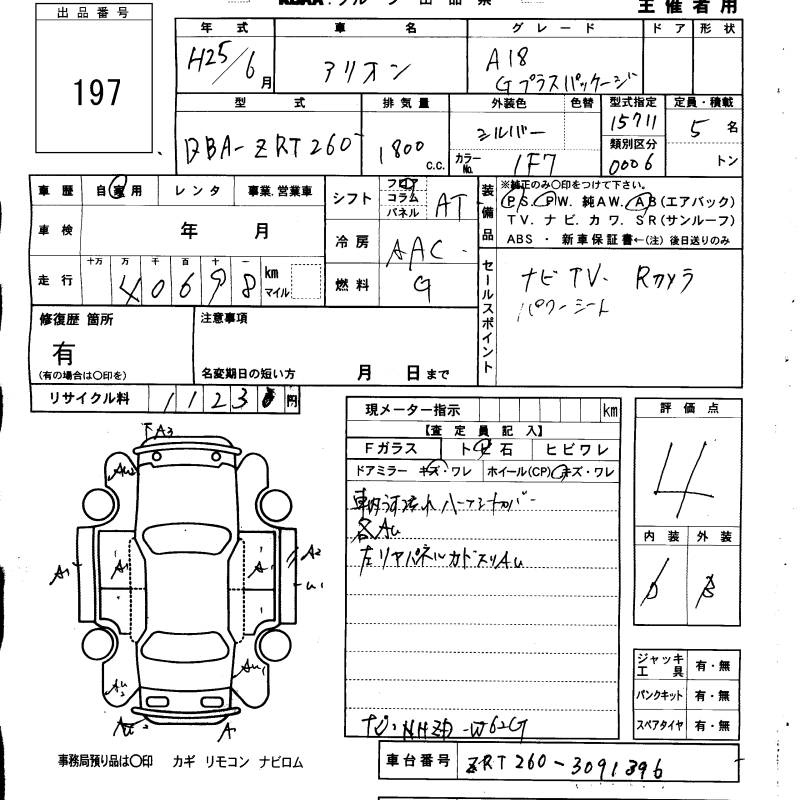 主催者用
出品番号
197
年式 車名 グレード ドア 形状
H25/6月 アリオン A18
Gプラスパッケージ
型式 排気量 外装色 色替 型式指定 定員・積載
DBA-ZRT260 1800 c.c. シルバー 15711 5名
カラーNo. 1F7 類別区分 0006 トン
車歴 自家用 レンタ 事業,営業車
車検 年 月
走行 十万 万 千 百 十 一
40698 km マイル
シフト フロア コラム パネル AT
冷房 AAC
燃料 G
装備品 ※純正のみ〇印をつけて下さい。
PS. PW. 純AW. AB(エアバック)
TV. ナビ. カワ. SR(サンルーフ)
ABS ・ 新車保証書←(注) 後日送りのみ
セールスポイント ナビTV. Rカメラ
パワーシート
修復歴 箇所
有
(有の場合は〇印を)
注意事項
名変期日の短い方 月 日まで
リサイクル料 円
現メーター指示 km
【査定員記入】
Fガラス ト 石 ヒビワレ
ドアミラー キズ・ワレ ホイール(CP) キズ・ワレ
各AU
左リヤパネルカドスリAU
ナビ:NHZD-W62G
評価点
4
内装 外装
B
ジャッキ工具 有・無
パンクキット 有・無
スペアタイヤ 有・無
A3
A1
A1
A1
A2
U1
AU1
A
事務局預り品は〇印 カギ リモコン ナビロム
車台番号 ZRT260-3091396